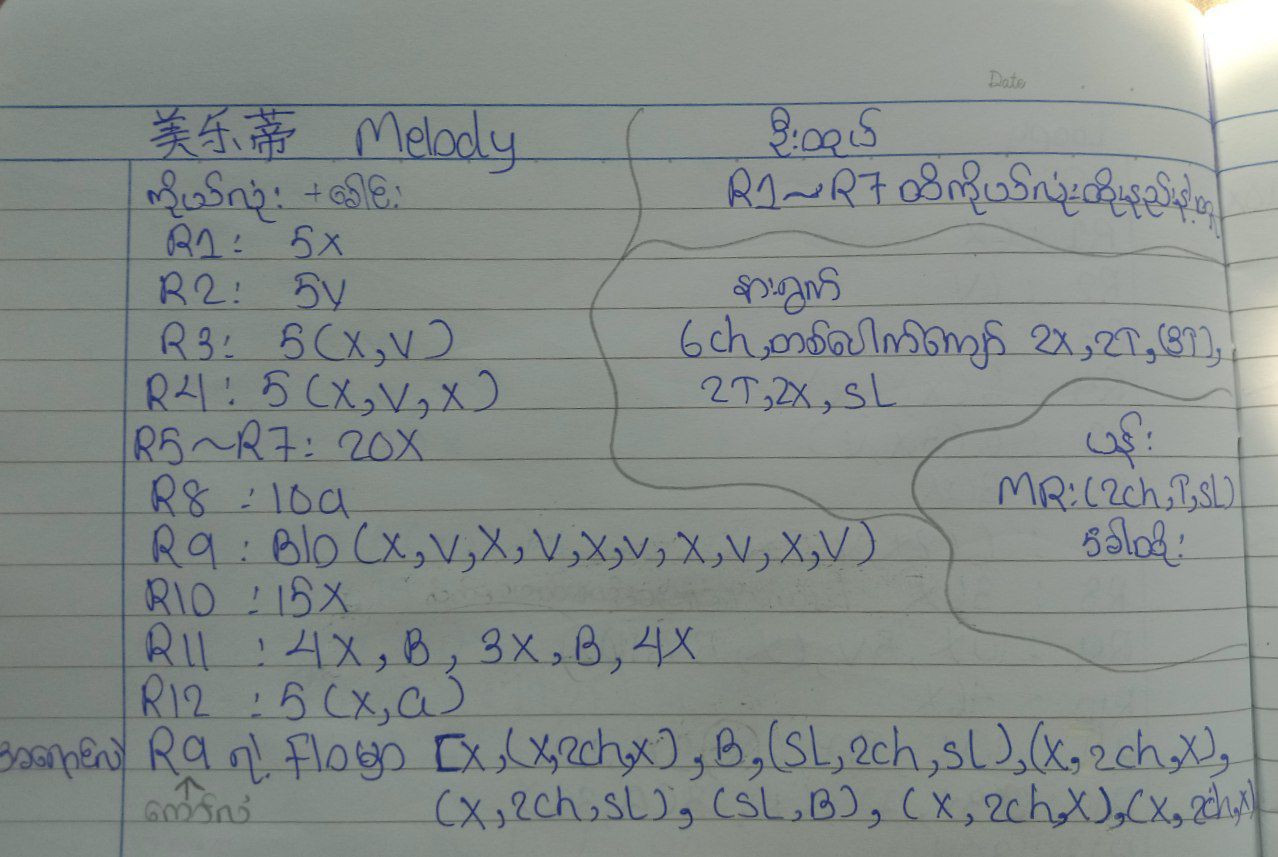 Date
美乐蒂 Melody
ကိုယ်လုံး + ခေါင်း
R1: 5X
R2: 5V
R3: 5(X,V)
R4: 5(X,V,X)
R5~R7: 20X
R8 : 10a
R9 : BLO (X,V,X,V,X,V,X,V,X,V)
R10 : 15X
R11 : 4X, B, 3X, B, 4X
R12 : 5(X,a)
R9 ရဲ့ FLO မှာ [X,(X,2ch,X),B,(SL,2ch,SL),(X,2ch,X),
(X,2ch,SL),(SL,B),(X,2ch,X),(X,2ch,X)
ဦးထုပ်
R1~R7 ထိ
နားရွက်
6ch, တစ်ပေါက်ကျော် 2X,2T,(3T),
2T,2X,SL
ပန်း
MR:(2ch,T,SL)
5ခါထိုး